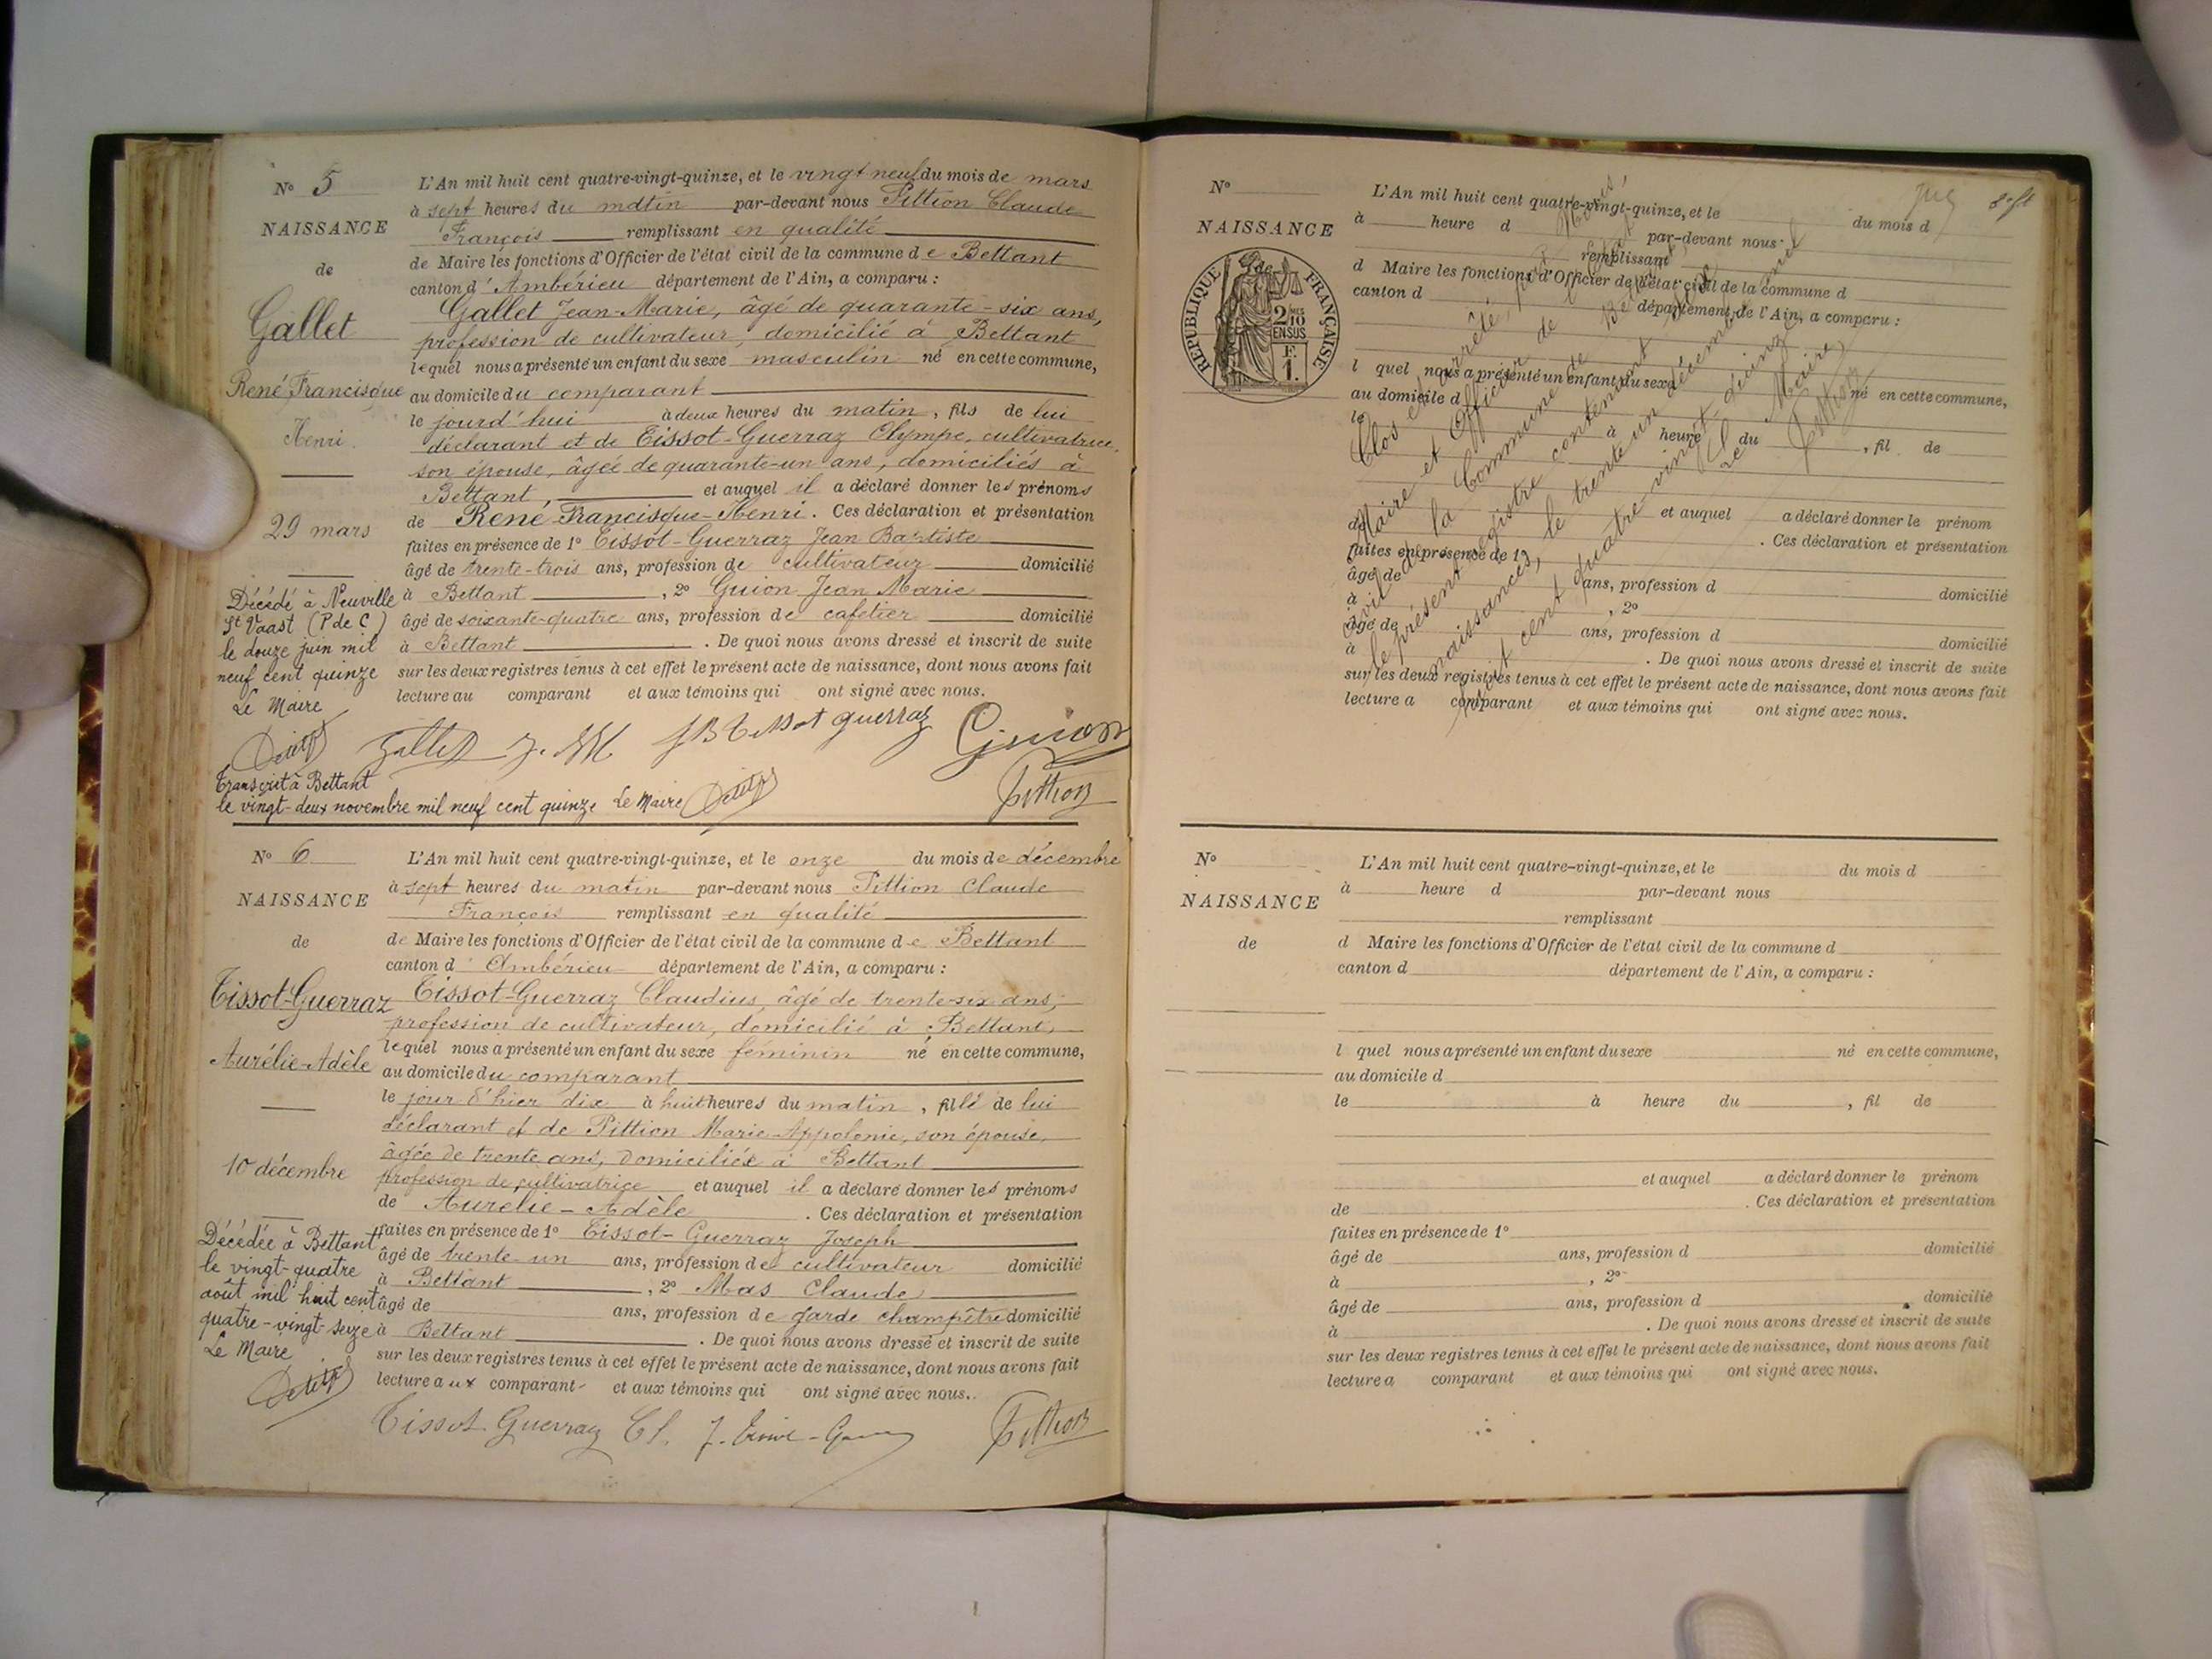 N° 5
NAISSANCE
de
Gallet
René Francisque
Henri.
29 mars
Décédé à Neuville
St Vaast (P de C)
le douze juin mil
neuf cent quinze
Le Maire
L'An mil huit cent quatre-vingt-quinze, et le vingt neuf du mois de mars
à sept heures du matin par-devant nous Pittion Claude
François remplissant en qualité
de Maire les fonctions d'Officier de l'état civil de la commune de Bettant
canton d'Ambérieu département de l'Ain, a comparu :
Gallet Jean-Marie, âgé de quarante-six ans,
profession de cultivateur, domicilié à Bettant
lequel nous a présenté un enfant du sexe masculin né en cette commune,
au domicile du comparant
le jourd'hui à deux heures du matin, fils de lui
déclarant et de Tissot-Guerraz Olympe, cultivatrice,
son épouse, âgée de quarante-un ans, domiciliés à
Bettant, et auquel il a déclaré donner les prénoms
de René-Francisque-Henri. Ces déclaration et présentation
faites en présence de 1° Tissot-Guerraz Jean Baptiste
âgé de trente-trois ans, profession de cultivateur domicilié
à Bettant, 2° Guion Jean Marie
âgé de soixante-quatre ans, profession de cafetier domicilié
à Bettant. De quoi nous avons dressé et inscrit de suite
sur les deux registres tenus à cet effet le présent acte de naissance, dont nous avons fait
lecture au comparant et aux témoins qui ont signé avec nous.
Gallet J. M JB Tissot guerraz Guion
Pittion
Transcrit à Bettant
le vingt-deux novembre mil neuf cent quinze Le Maire
N° 6
NAISSANCE
de
Tissot-Guerraz
Aurélie-Adèle
10 décembre
Décédée à Bettant
le vingt-quatre
août mil huit cent
quatre-vingt-seize
Le Maire
L'An mil huit cent quatre-vingt-quinze, et le onze du mois de décembre
à sept heures du matin par-devant nous Pittion Claude
François remplissant en qualité
de Maire les fonctions d'Officier de l'état civil de la commune de Bettant
canton d'Ambérieu département de l'Ain, a comparu :
Tissot-Guerraz Claudius, âgé de trente-six ans,
profession de cultivateur, domicilié à Bettant,
lequel nous a présenté un enfant du sexe féminin né en cette commune,
au domicile du comparant
le jour d'hier dix à huit heures du matin, fille de lui
déclarant et de Pittion Marie-Appolonie, son épouse,
âgée de trente ans, domiciliée à Bettant
profession de cultivatrice et auquel il a déclaré donner les prénoms
de Aurélie-Adèle. Ces déclaration et présentation
faites en présence de 1° Tissot-Guerraz Joseph
âgé de trente-un ans, profession de cultivateur domicilié
à Bettant, 2° Mas Claude
âgé de ans, profession de garde champêtre domicilié
à Bettant. De quoi nous avons dressé et inscrit de suite
sur les deux registres tenus à cet effet le présent acte de naissance, dont nous avons fait
lecture aux comparant et aux témoins qui ont signé avec nous.
Tissot Guerraz Cl.
Pittion
N°
NAISSANCE
de
RÉPUBLIQUE FRANÇAISE
2/10
EN SUS
F.
1.
L'An mil huit cent quatre-vingt-quinze, et le du mois d
à heure d par-devant nous
remplissant
d Maire les fonctions d'Officier de l'état civil de la commune d
canton d département de l'Ain, a comparu :
l quel nous a présenté un enfant du sexe né en cette commune,
au domicile d
le à heure du , fil de
et auquel a déclaré donner le prénom
de . Ces déclaration et présentation
faites en présence de 1°
âgé de ans, profession d domicilié
à , 2°
âgé de ans, profession d domicilié
à . De quoi nous avons dressé et inscrit de suite
sur les deux registres tenus à cet effet le présent acte de naissance, dont nous avons fait
lecture a comparant et aux témoins qui ont signé avec nous.
Clos et arrêté, par Nous,
Maire et Officier de l'état
civil de la Commune de Bettant,
le présent registre contenant
naissances, le trente un décembre mil
huit cent quatre-vingt-quinze
Le Maire,
Pittion
N°
NAISSANCE
de
L'An mil huit cent quatre-vingt-quinze, et le du mois d
à heure d par-devant nous
remplissant
d Maire les fonctions d'Officier de l'état civil de la commune d
canton d département de l'Ain, a comparu :
l quel nous a présenté un enfant du sexe né en cette commune,
au domicile d
le à heure du , fil de
et auquel a déclaré donner le prénom
de . Ces déclaration et présentation
faites en présence de 1°
âgé de ans, profession d domicilié
à , 2°
âgé de ans, profession d domicilié
à . De quoi nous avons dressé et inscrit de suite
sur les deux registres tenus à cet effet le présent acte de naissance, dont nous avons fait
lecture a comparant et aux témoins qui ont signé avec nous.